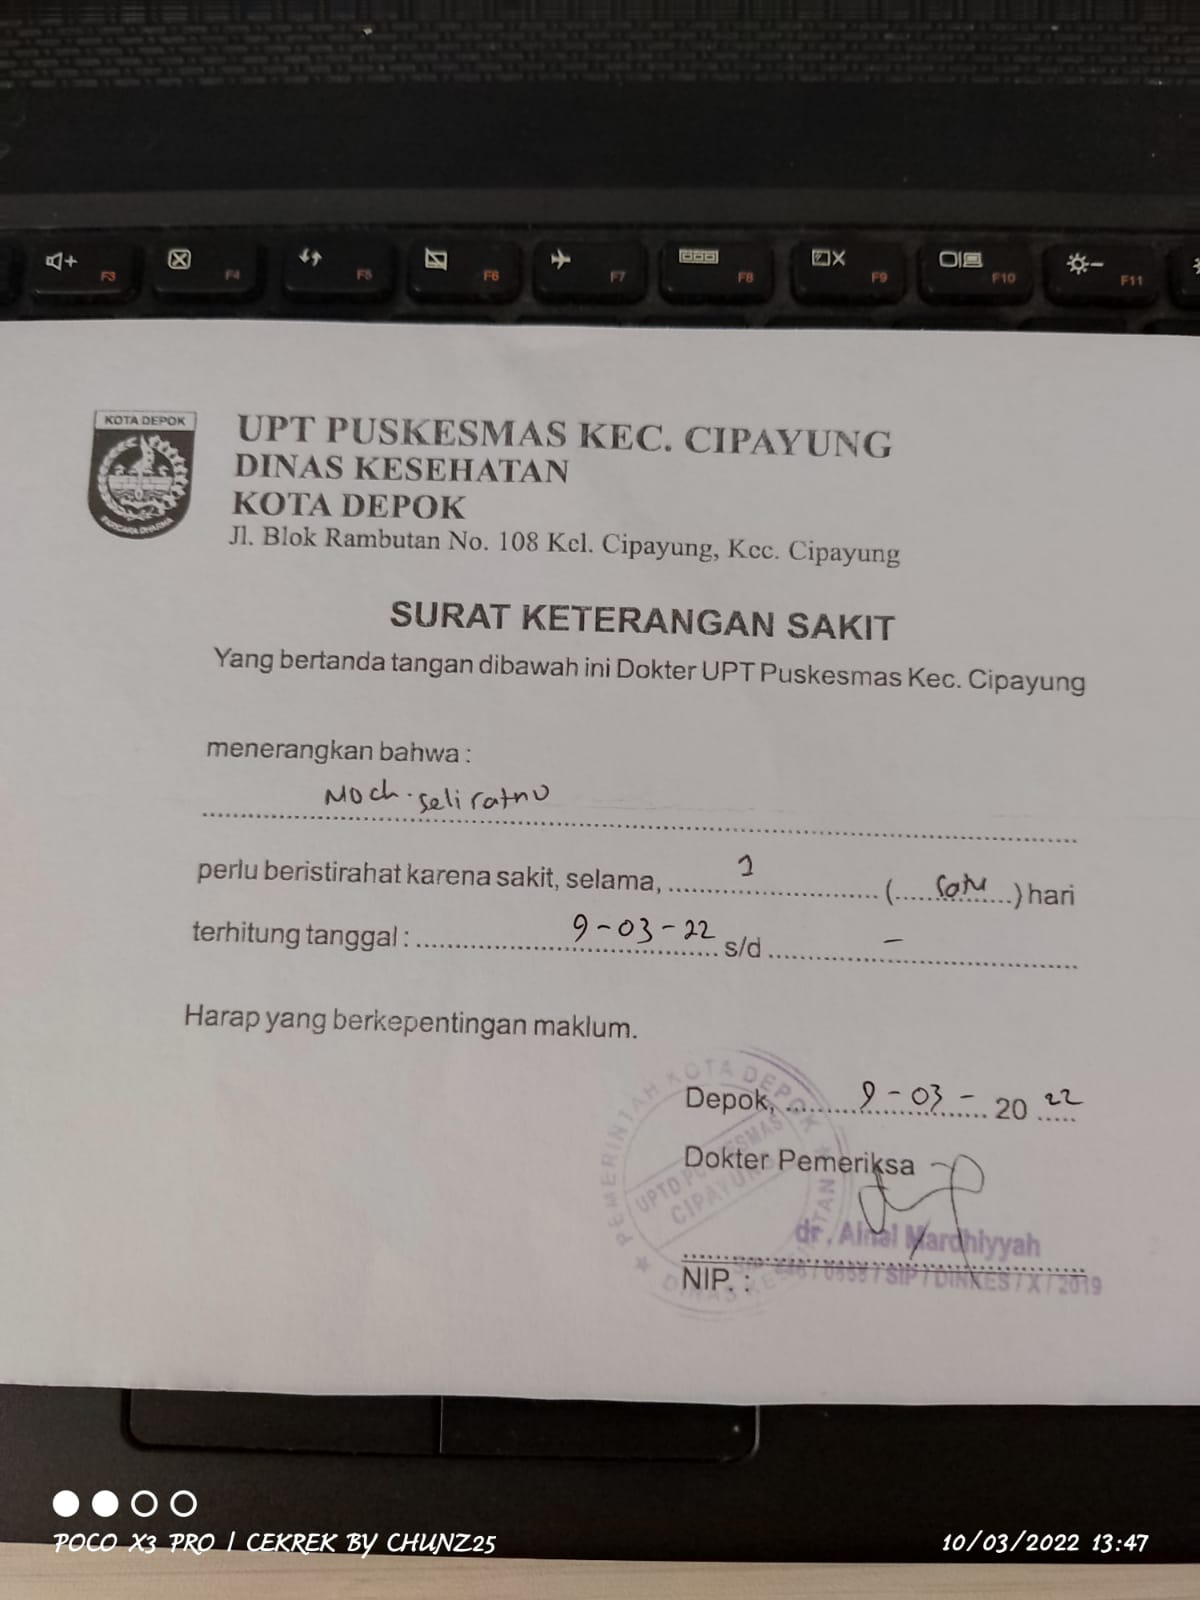 F3 F4 F5 F6 F7 F8 F9 F10 F11
KOTA DEPOK
UPT PUSKESMAS KEC. CIPAYUNG
DINAS KESEHATAN
KOTA DEPOK
Jl. Blok Rambutan No. 108 Kel. Cipayung, Kec. Cipayung
SURAT KETERANGAN SAKIT
Yang bertanda tangan dibawah ini Dokter UPT Puskesmas Kec. Cipayung
menerangkan bahwa :
Moch. Seli ratno
perlu beristirahat karena sakit, selama, 1 (satu) hari
terhitung tanggal : 9-03-22 s/d -
Harap yang berkepentingan maklum.
Depok, 9-03-2022
Dokter Pemeriksa
dr. Ainal Mardhiyyah
NIP. : / SIP / DINKES / X / 2019
PEMERINTAH KOTA DEPOK
UPTD PUSKESMAS
CIPAYUNG
DINAS KESEHATAN
POCO X3 PRO | CEKREK BY CHUNZ25
10/03/2022 13:47